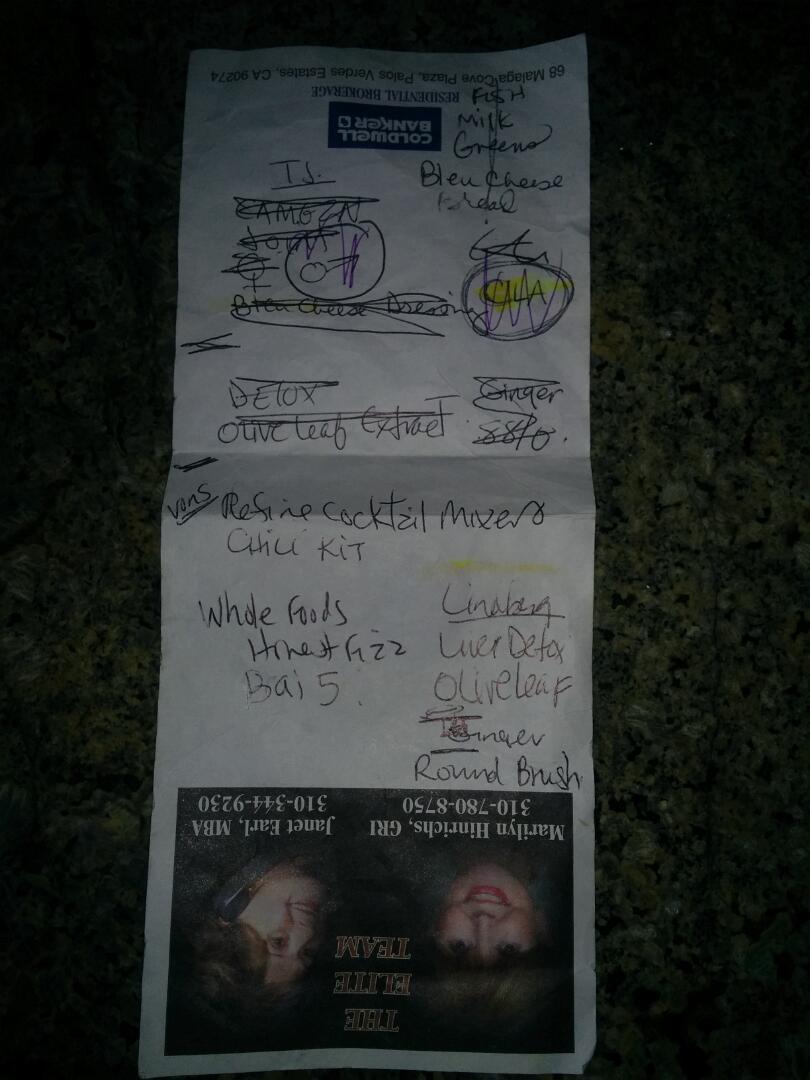 68 Malaga Cove Plaza, Palos Verdes Estates, CA 90274
RESIDENTIAL BROKERAGE
COLDWELL
BANKER
FISH
Milk
Greens
Bleu Cheese
Bread
T.J.
Bleu Cheese Dressing
CLA
DETOX
Ginger
Olive Leaf Extract
Vons
Refine Cocktail Mixers
CHILI KIT
Whole Foods
Honest Fizz
Bai 5
Lindberg
Liver Detox
Olive Leaf
Ginger
Round Brush
Marilyn Hinrichs, GRI
310-780-8750
Janet Earl, MBA
310-344-9230
THE
ELITE
TEAM